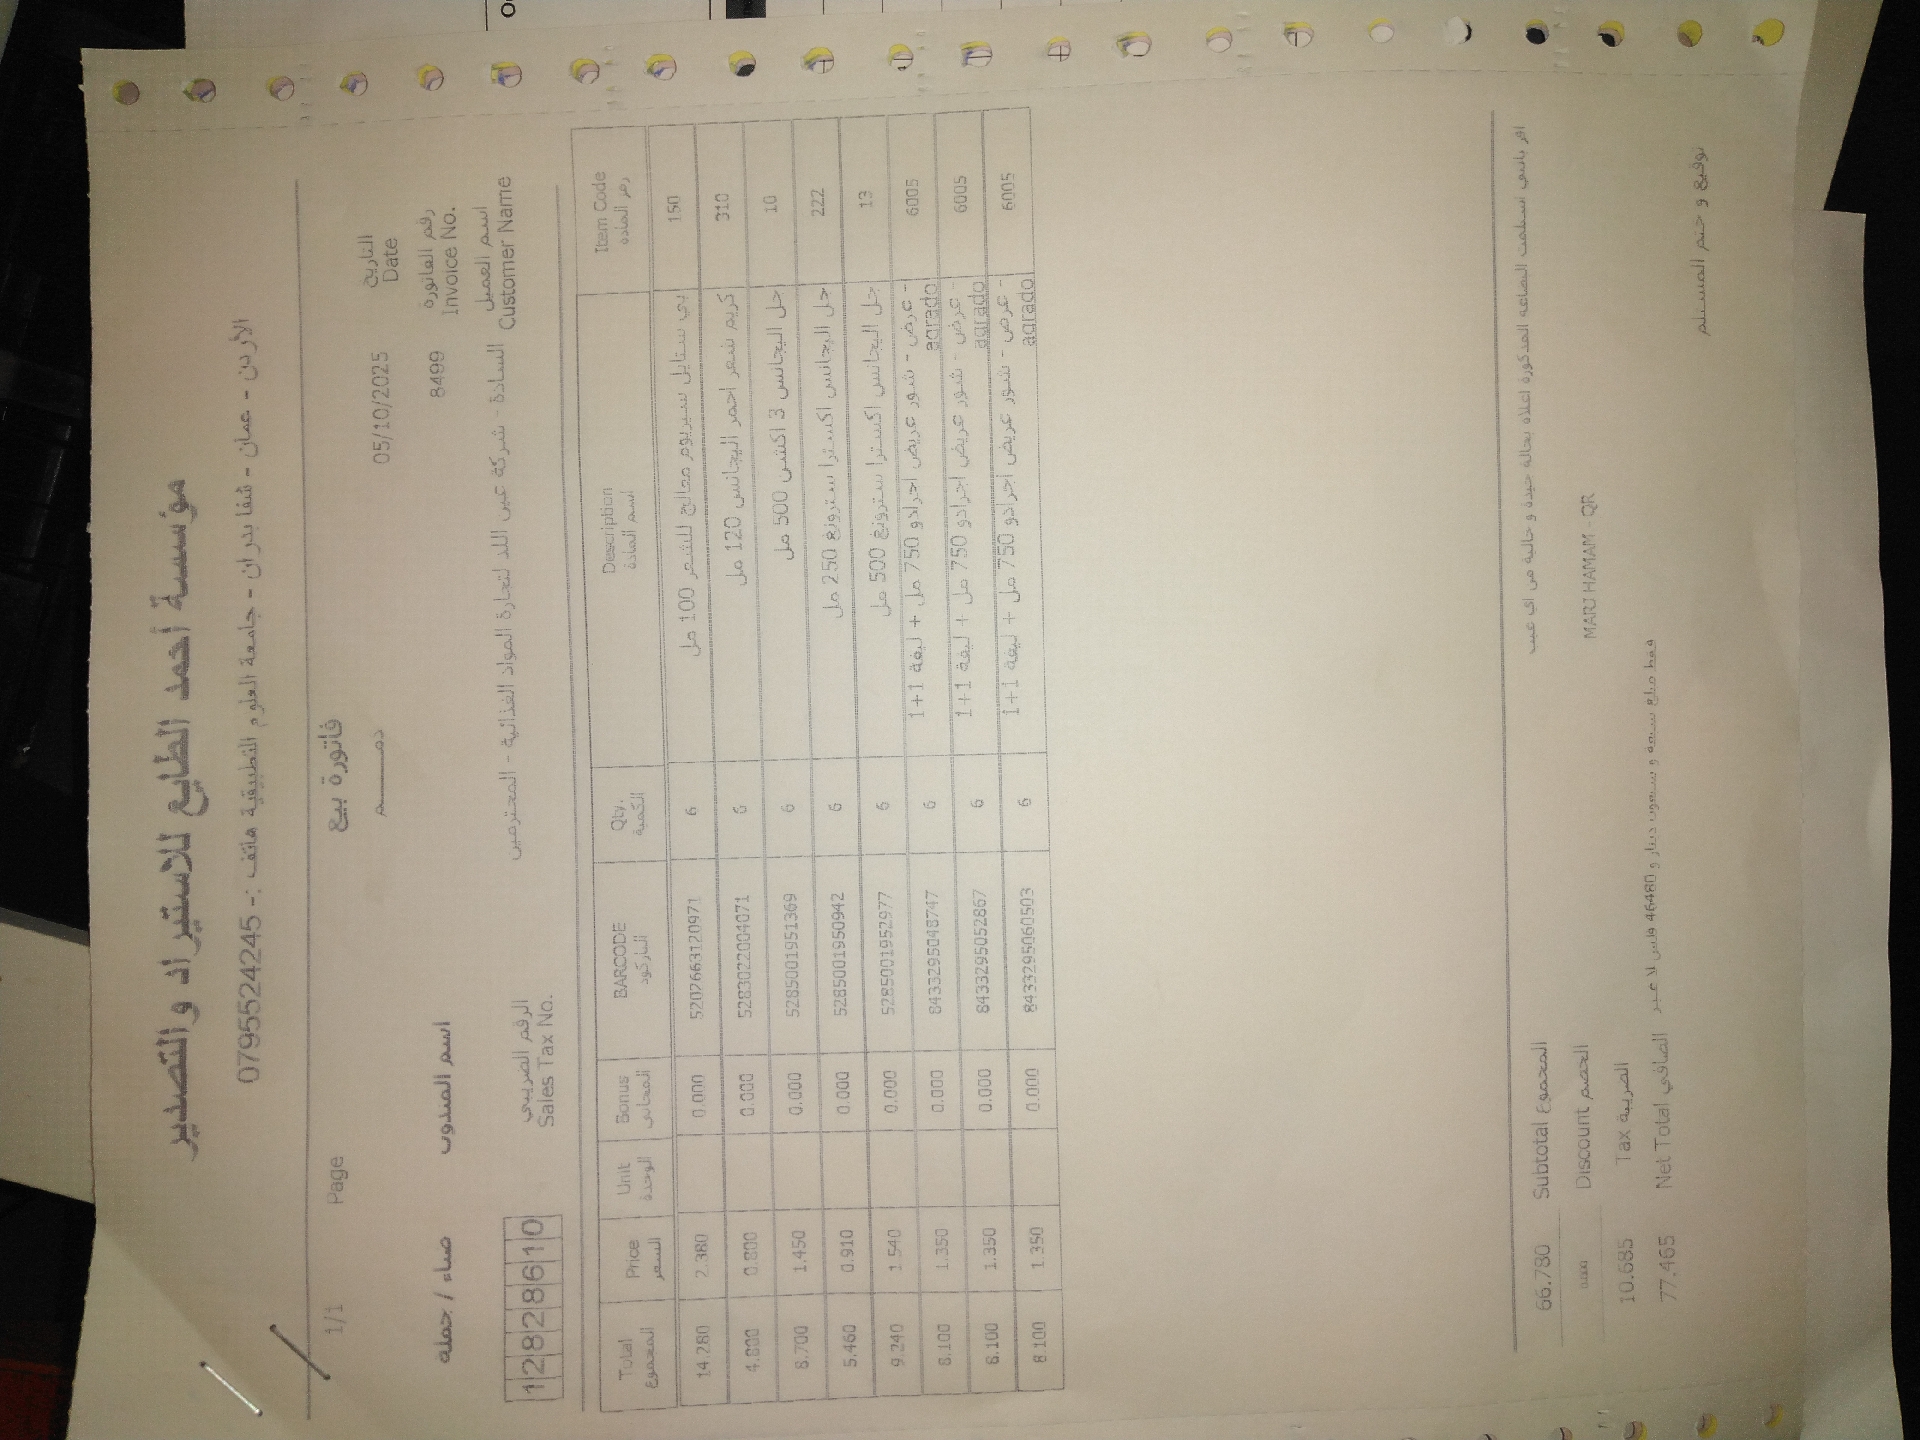 مؤسسة أحمد الطايع للاستيراد والتصدير
الأردن - عمان - شفا بدران - جامعة العلوم التطبيقية هاتف :- 0795524245
فاتورة بيع
1/1 Page
التاريخ
Date 05/10/2025
ذمـــــم
رقم الفاتورة
Invoice No. 8499
اسم المندوب صفاء / جمله
اسم العميل
Customer Name السادة - شركة عين اللد لتجارة المواد الغذائية - المحترمين
الرقم الضريبي
Sales Tax No. 12828610
Item Code Description Qty. BARCODE Bonus Unit Price Total
رمز المادة اسم المادة الكمية الباركود المجاني الوحدة السعر المجموع
150 بي ستايل سيريوم معالج للشعر 100 مل 6 5202663120971 0.000 2.380 14.280
310 كريم شعر احمر اليجانس 120 مل 6 5283022004071 0.000 0.800 4.800
10 جل اليجانس 3 اكشن 500 مل 6 5285001951369 0.000 1.450 8.700
222 جل اليجانس اكسترا سترونغ 250 مل 6 5285001950942 0.000 0.910 5.460
13 جل اليجانس اكسترا سترونغ 500 مل 6 5285001952977 0.000 1.540 9.240
6005 عرض - شور عريض اجرادو 750 مل + ليفة 1+1 - agrado 6 8433295048747 0.000 1.350 8.100
6005 عرض - شور عريض اجرادو 750 مل + ليفة 1+1 - agrado 6 8433295052867 0.000 1.350 8.100
6005 عرض - شور عريض اجرادو 750 مل + ليفة 1+1 - agrado 6 8433295060503 0.000 1.350 8.100
اقر بانني استلمت البضاعة المذكورة اعلاه بحالة جيدة و خالية من اي عيب
66.780 Subtotal المجموع
MARJ HAMAM - QR
0.000 Discount الخصم
10.685 Tax الضريبة
77.465 Net Total الصافي فقط مبلغ سبعة و سبعون دينار و 46480 فلس لا غير
توقيع و ختم المستلم